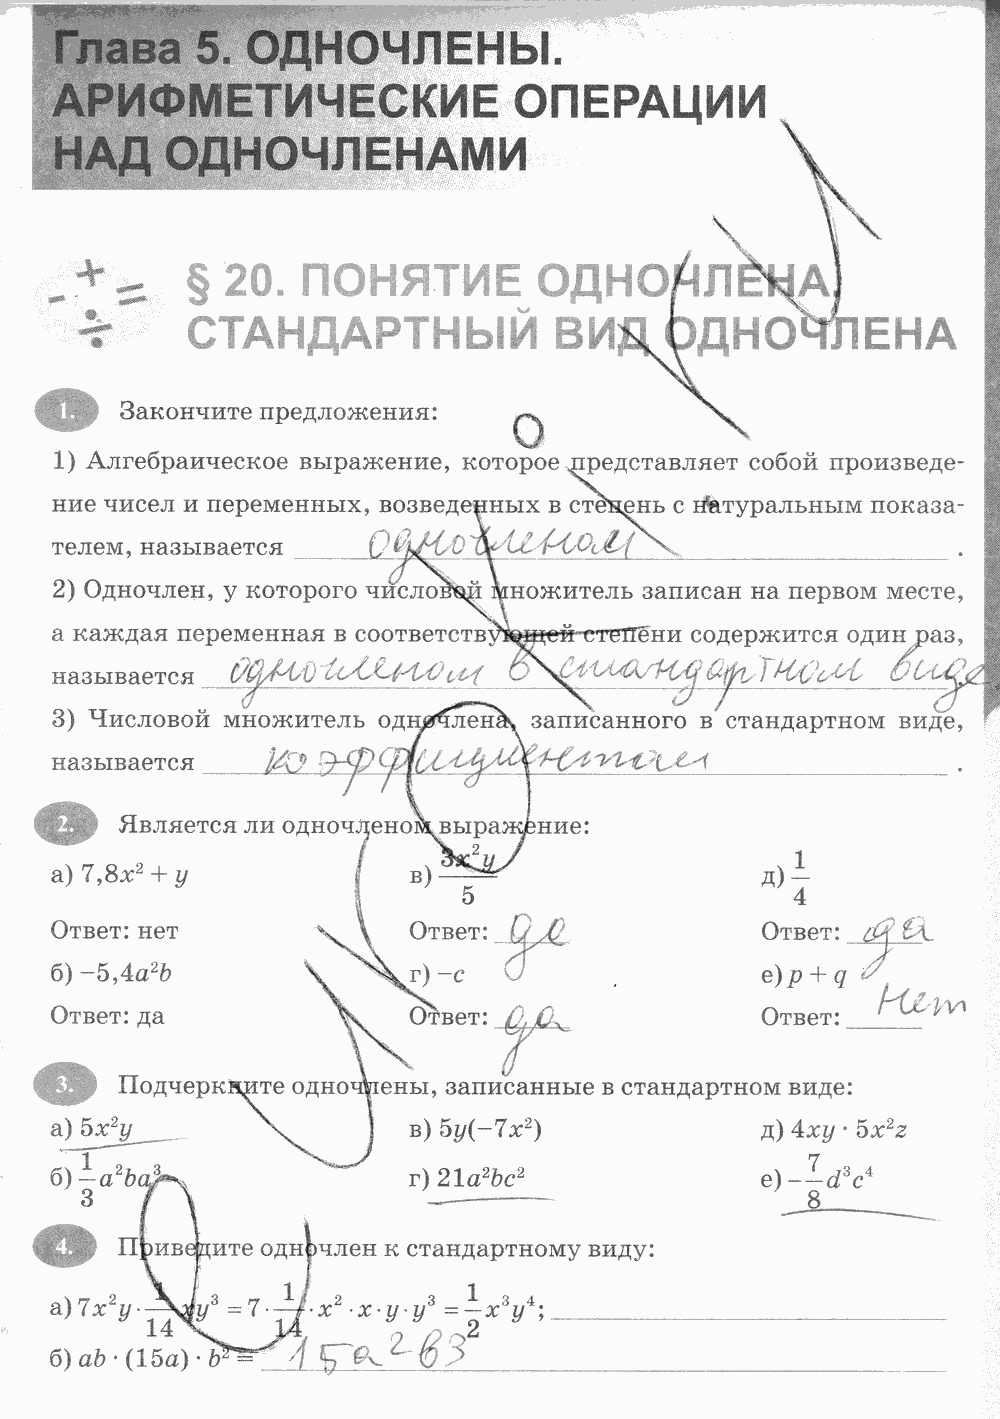 Глава 5. ОДНОЧЛЕНЫ.
АРИФМЕТИЧЕСКИЕ ОПЕРАЦИИ
НАД ОДНОЧЛЕНАМИ
§ 20. ПОНЯТИЕ ОДНОЧЛЕНА.
СТАНДАРТНЫЙ ВИД ОДНОЧЛЕНА
1. Закончите предложения:
1) Алгебраическое выражение, которое представляет собой произведе-
ние чисел и переменных, возведенных в степень с натуральным показа-
телем, называется одночленом.
2) Одночлен, у которого числовой множитель записан на первом месте,
а каждая переменная в соответствующей степени содержится один раз,
называется одночленом в стандартном виде.
3) Числовой множитель одночлена, записанного в стандартном виде,
называется коэффициентом.
2. Является ли одночленом выражение:
а) 7,8x² + y в) 3x²y/5 д) 1/4
Ответ: нет Ответ: да Ответ: да
б) −5,4a²b г) −c е) p + q
Ответ: да Ответ: да Ответ: нет
3. Подчеркните одночлены, записанные в стандартном виде:
а) 5x²y в) 5y(−7x²) д) 4xy · 5x²z
б) 1/3 a²ba³ г) 21a²bc² е) −7/8 d³c⁴
4. Приведите одночлен к стандартному виду:
а) 7x²y · 1/14 xy³ = 7 · 1/14 · x² · x · y · y³ = 1/2 x³y⁴;
б) ab · (15a) · b² = 15a²b3